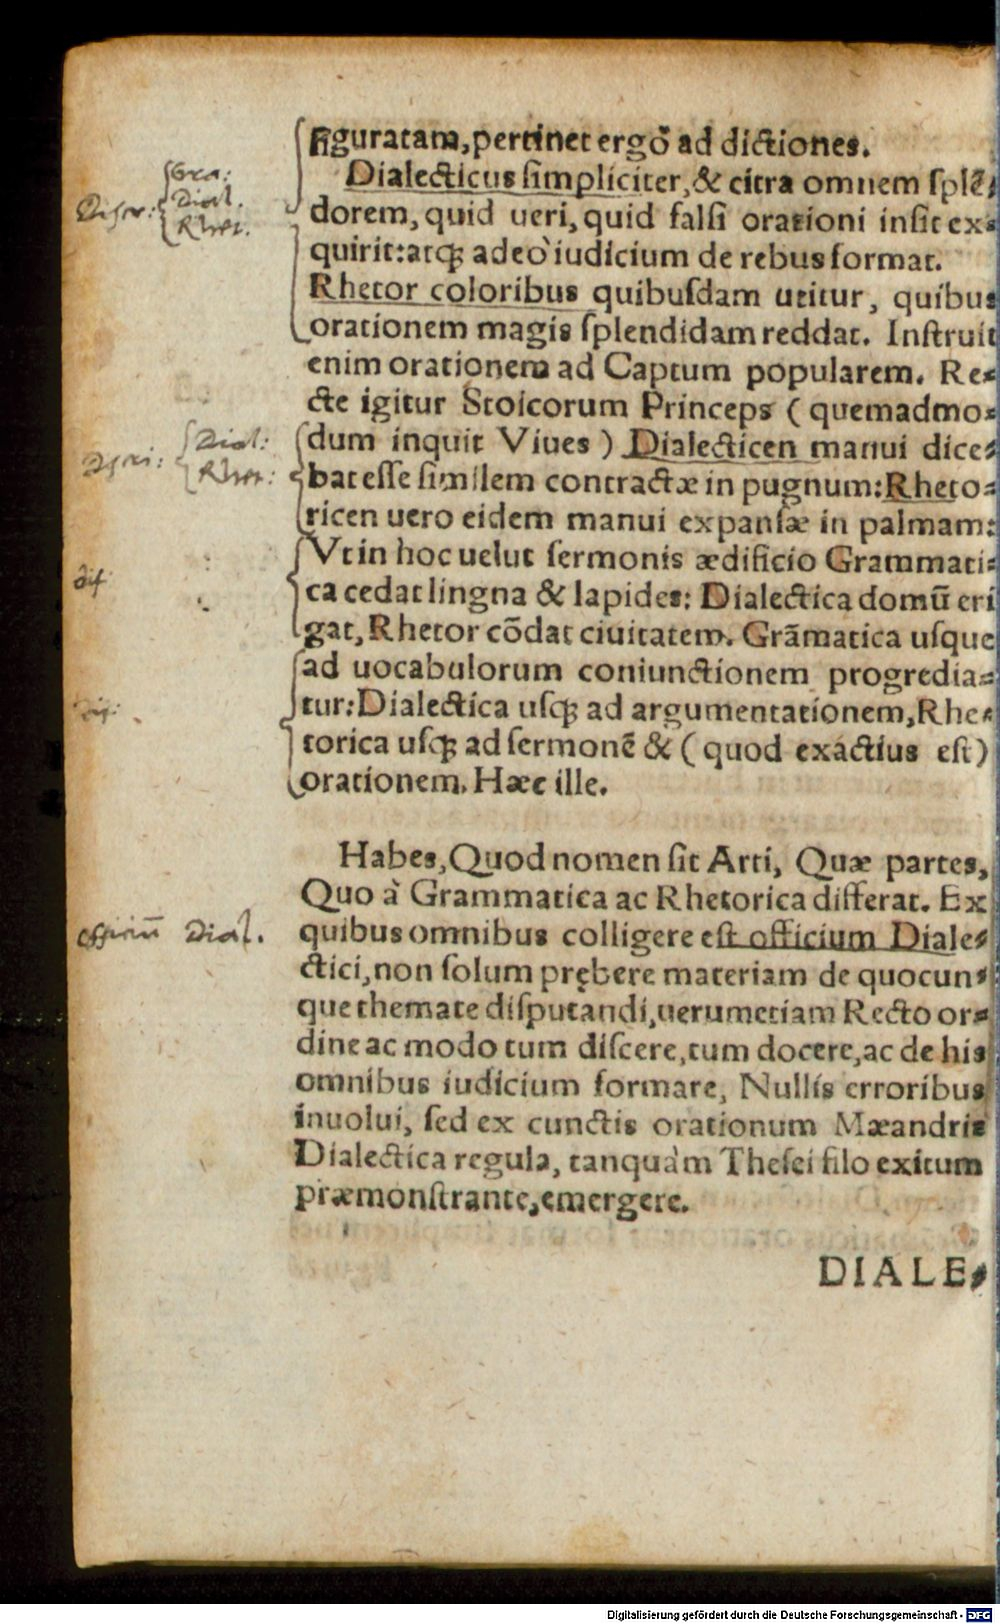 figuratam, pertinet ergo ad dictiones.
Dialecticus ſimpliciter, & citra omnem ſplẽ⸗
dorem, quid ueri, quid falſi orationi inſit ex⸗
quirit: atqꝫ adeò iudicium de rebus format.
Rhetor coloribus quibuſdam utitur, quibus
orationem magis ſplendidam reddat. Inſtruit
enim orationem ad Captum popularem. Re⸗
cte igitur Stoicorum Princeps (quemadmo⸗
dum inquit Viues) Dialecticen manui dice⸗
bat eſſe ſimilem contractæ in pugnum: Rheto⸗
ricen uero eidem manui expanſæ in palmam:
Vt in hoc uelut ſermonis ædificio Grammati⸗
ca cedat lingna & lapides: Dialectica domũ eri
gat, Rhetor cõdat ciuitatem. Grãmatica uſque
ad uocabulorum coniunctionem progredia⸗
tur: Dialectica uſqꝫ ad argumentationem, Rhe⸗
torica uſqꝫ ad ſermonẽ & (quod exactius eſt)
orationem. Hæc ille.
Habes, Quod nomen ſit Arti, Quæ partes,
Quo à Grammatica ac Rhetorica differat. Ex
quibus omnibus colligere eſt officium Diale⸗
ctici, non ſolum prębere materiam de quocun⸗
que themate diſputandi, uerumetiam Recto or⸗
dine ac modo tum diſcere, tum docere, ac de his
omnibus iudicium formare, Nullis erroribus
inuolui, ſed ex cunctis orationum Mæandris
Dialectica regula, tanquàm Theſei filo exitum
præmonſtrante, emergere.
DIALE⸗
Gra:
Dial.
Rhet.
Dial:
Rhet:
dif
officiũ Dial.
Digitalisierung gefördert durch die Deutsche Forschungsgemeinschaft - DFG